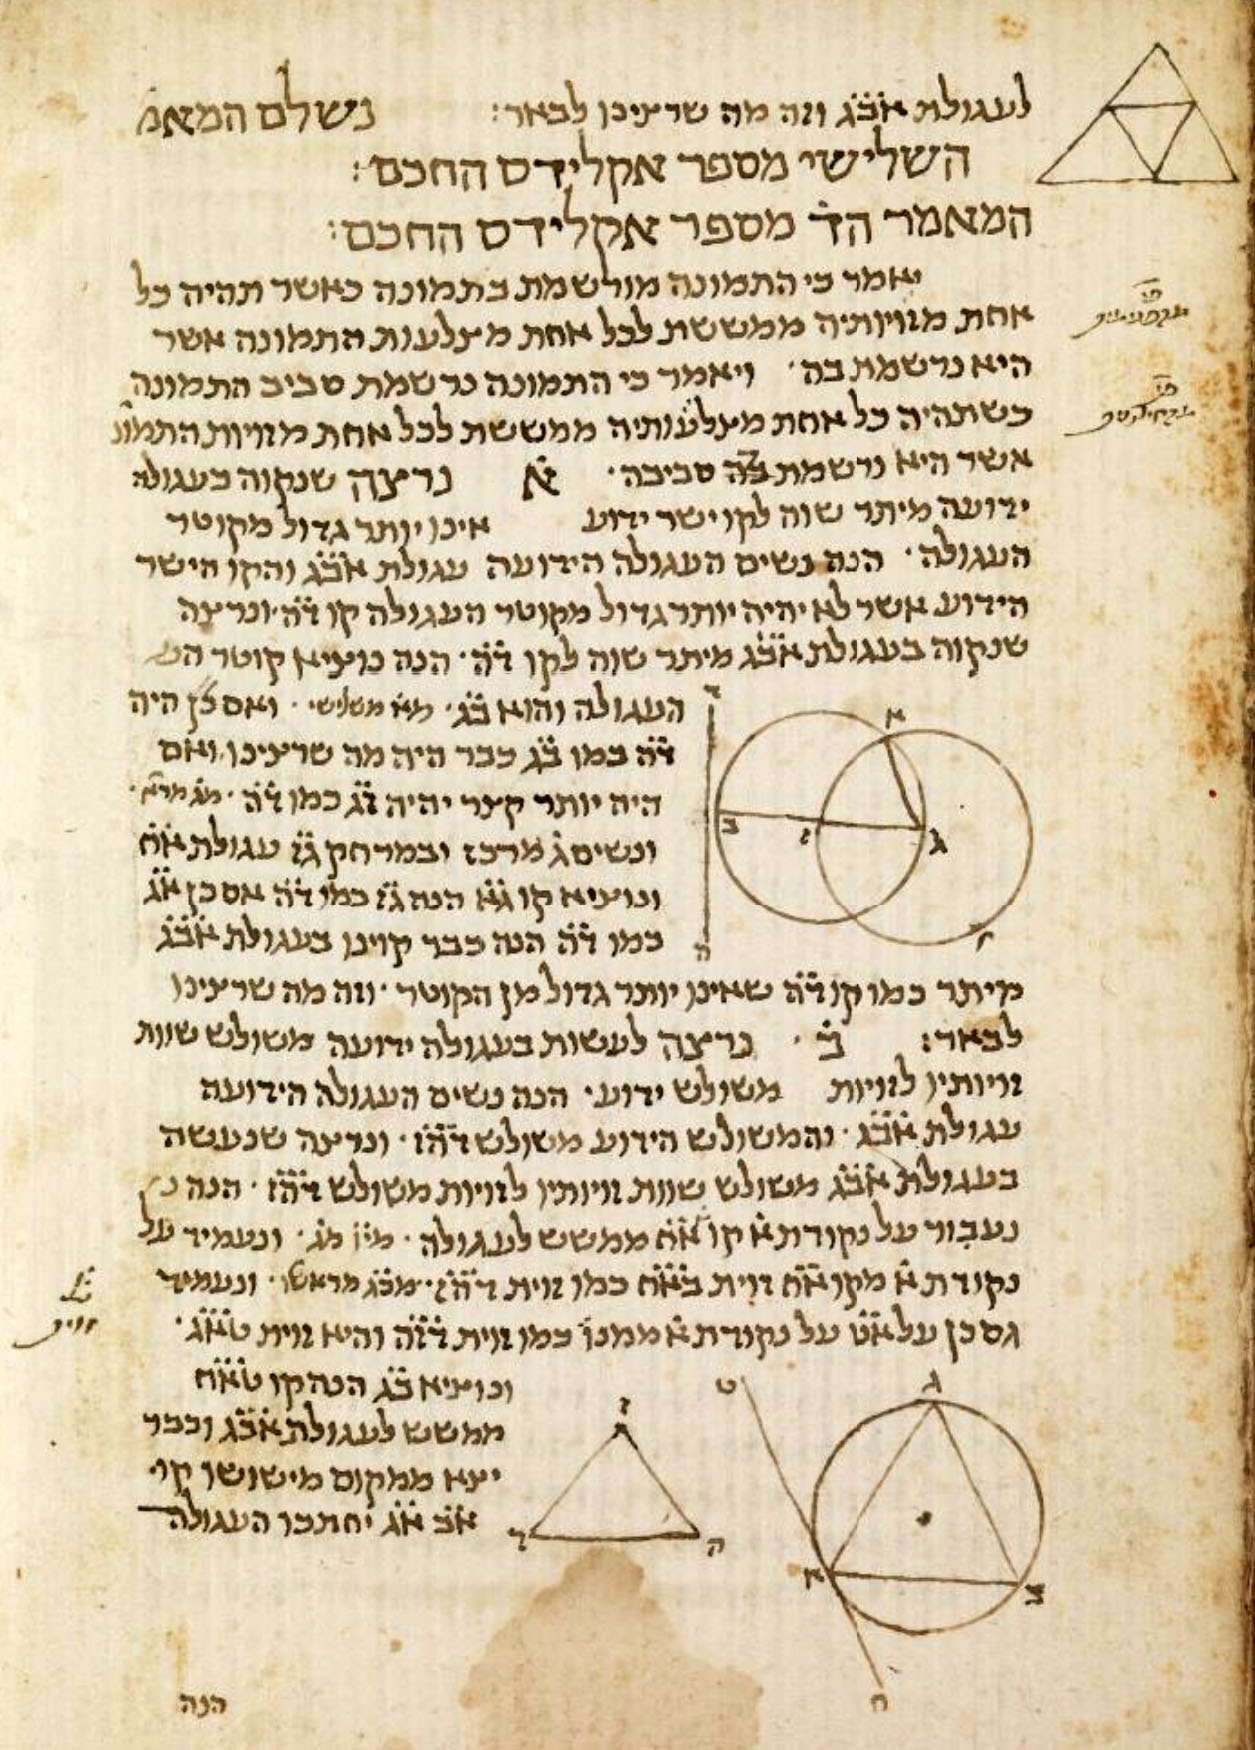 לעגולת אבג וזה מה שרצינו לבאר: נשלם המאמ
השלישי מספר אקלידס החכם:
המאמר הד מספר אקלידס החכם:
יאמר כי התמונה מורשמת בתמונה כאשר תהיה כל
אחת מזויותיה ממששת לכל אחת מצלעות התמונה אשר
היא נרשמת בה. ויאמר כי התמונה נרשמת סביב התמונה
כשתהיה כל אחת מצלעותיה ממששת לכל אחת מזויות התמונ
אשר היא נרשמת בה סביבה. א נרצה שנקוה בעגולה
ידועה מיתר שוה לקו ישר ידוע אינו יותר גדול מקוטר
העגולה. הנה נשים העגולה הידועה עגולת אבג והקו הישר
הידוע אשר לא יהיה יותר גדול מקוטר העגולה קו דה. ונרצה
שנקוה בעגולת אבג מיתר שוה לקו דה. הנה נוציא קוטר
העגולה והוא בג. מא משלישי. ואם כן היה
דה כמו בג כבר היה מה שרצינו. ואם
היה יותר קצר יהיה זג כמו דה.
ונשים ג מרכז ובמרחק גז עגולת אח
ונוציא קו גא הנה גז כמו דה אם כן אג
כמו דה הנה כבר קוינו בעגולת אבג
מיתר כמו קו דה שאינו יותר גדול מן הקוטר. וזה מה שרצינו
לבאר: ב. נרצה לעשות בעגולה ידועה משולש שוות
זויותיו לזויות משולש ידוע. הנה נשים העגולה הידועה
עגולת אבג. והמשולש הידוע משולש דהז. ונרצה שנעשה
בעגולת אבג משולש שוות זויותיו לזויות משולש דהז. הנה
נעבור על נקודת א קו אח ממשש לעגולה. ונעמיד על
נקודת א מקו אח זוית באח כמו זוית דהז. מכג מראשו. ונעמיד
גם כן על אט על נקודת א ממנו כמו זוית דזה והיא זוית טאג.
ונוציא בג הנה קו טאח
ממשש לעגולת אבג וכבר
יצא ממקום מישושו קוי
אב אג יחתכו העגולה
הנה
א
ב
ג
ד
ה
ז
ח
ג
א
ב
ט
ח
ז
ד
ה